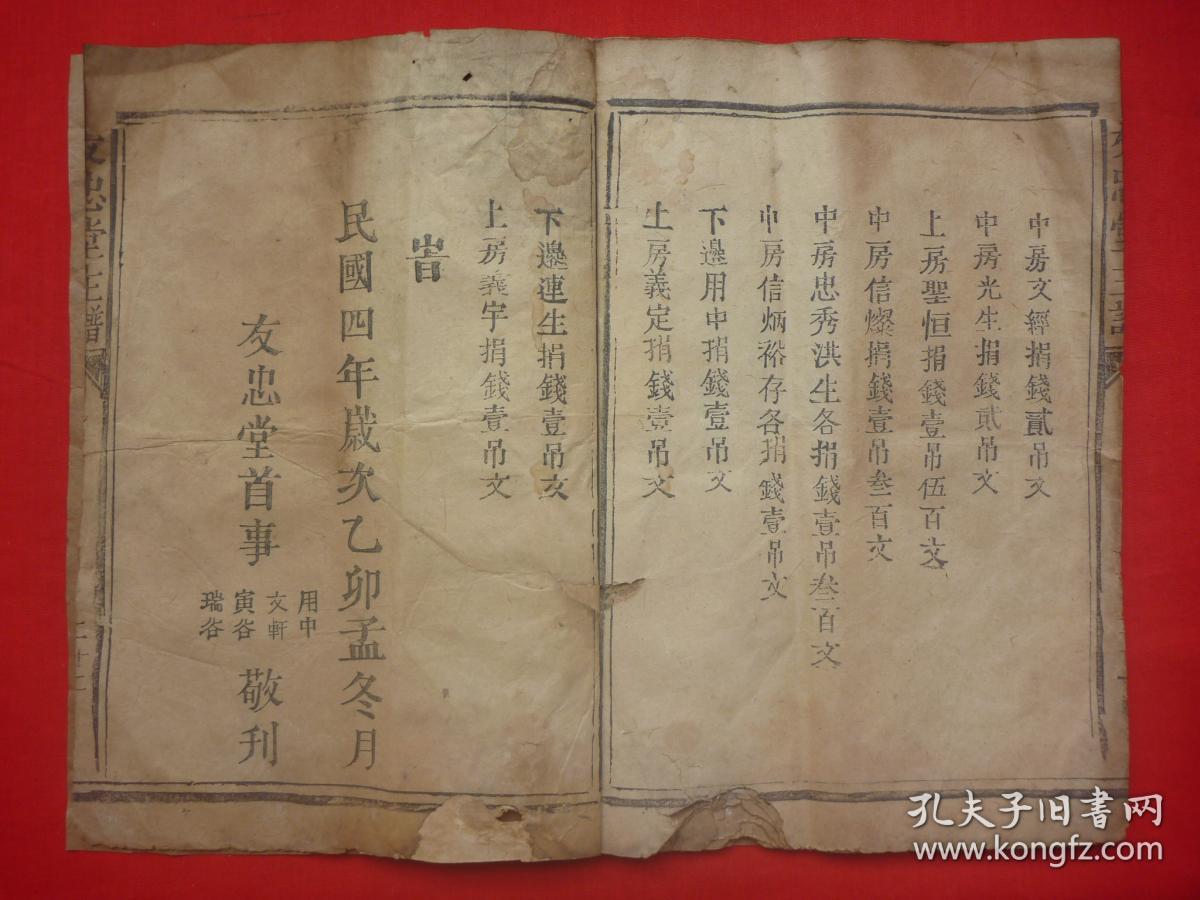 中房文經捐錢貳吊文
中房光生捐錢貳吊文
上房聖恒捐錢壹吊伍百文
中房信燦捐錢壹吊叁百文
中房忠秀洪生各捐錢壹吊叁百文
中房信炳裕存各捐錢壹吊文
下邊用中捐錢壹吊文
上房義定捐錢壹吊文
下邊連生捐錢壹吊文
上房義宇捐錢壹吊文
旹
民國四年歲次乙卯孟冬月
友忠堂首事
用中
文軒
寅谷
瑞谷
敬刊
友忠堂主譜
孔夫子旧书网
www.kongfz.com